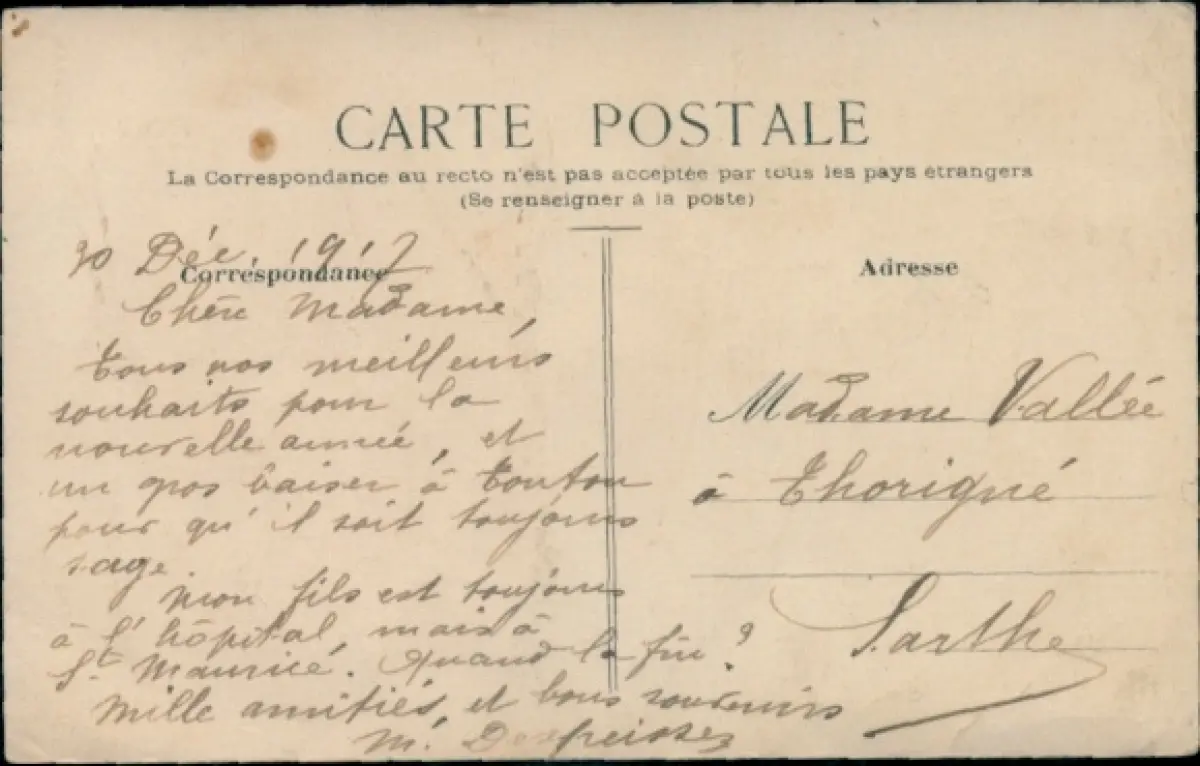 CARTE POSTALE
La Correspondance au recto n'est pas acceptée par tous les pays étrangers
(Se renseigner à la poste)
30 Déc 1917
Correspondance
Chère Madame,
Tous nos meilleurs
souhaits pour la
nouvelle année, et
un gros baiser à Tonton
pour qu'il soit toujours
sage.
Mon fils est toujours
à l'hôpital, mais à
St Maurice. Quand la fin ?
Mille amitiés, et bons souvenirs
M.
Adresse
Madame Vallée
à Thorigné
Sarthe